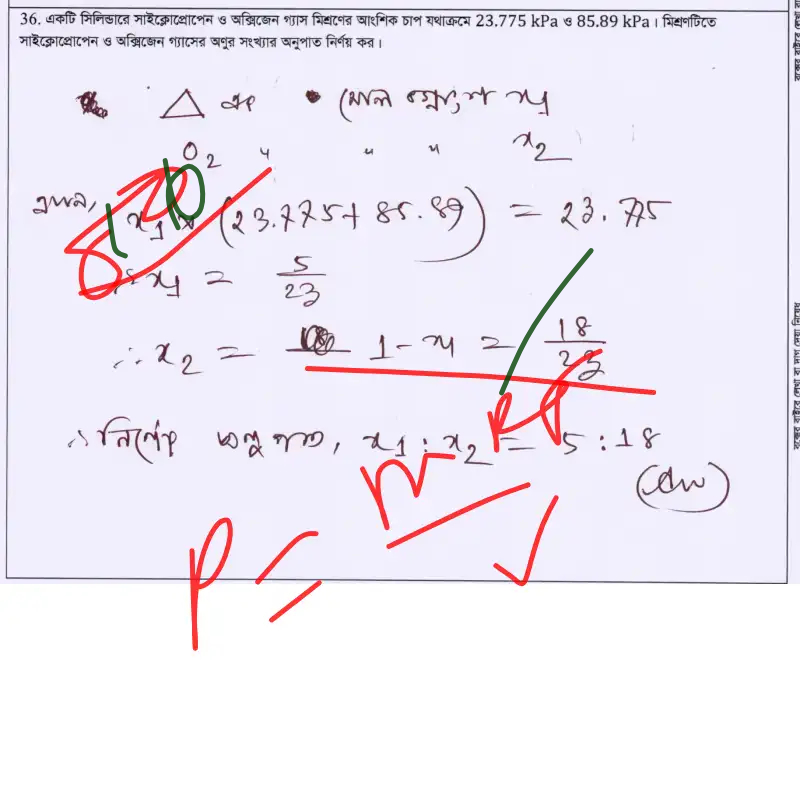 36. একটি সিলিন্ডারে সাইক্লোপ্রোপেন ও অক্সিজেন গ্যাস মিশ্রণের আংশিক চাপ যথাক্রমে 23.775 kPa ও 85.89 kPa। মিশ্রণটিতে
সাইক্লোপ্রোপেন ও অক্সিজেন গ্যাসের অণুর সংখ্যার অনুপাত নির্ণয় কর।
△ এর মোল ভগ্নাংশ x₁
O₂ " " " x₂
এখন, x₁ × (23.775+85.89) = 23.775
x₁ = 5/23
∴ x₂ = 1 - x₁ = 18/23
∴ নির্ণেয় অনুপাত, x₁ : x₂ = 5 : 18
(Ans)
P =